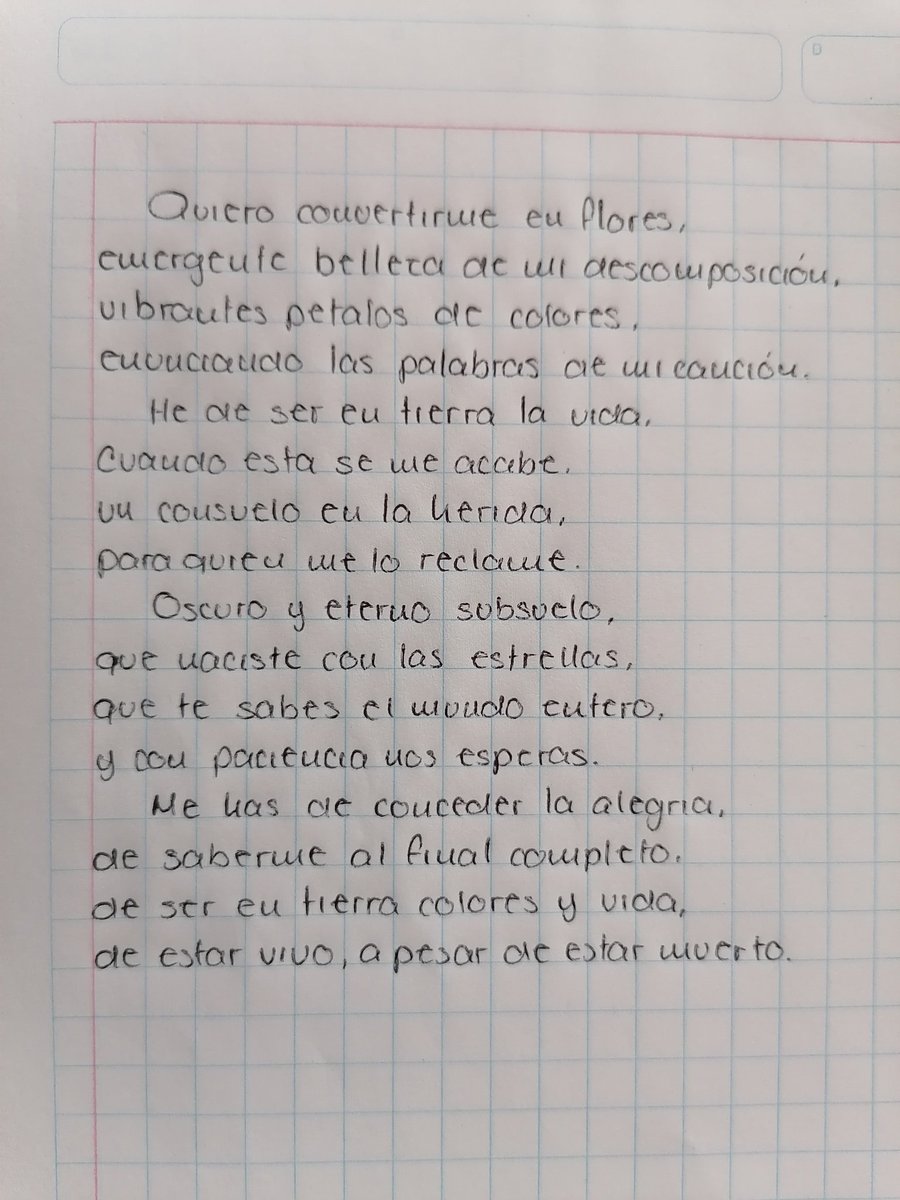 Quiero convertirme en flores,
emergente belleza de mi descomposición,
vibrantes petalos de colores,
enunciando las palabras de mi caución.
He de ser en tierra la vida,
Cuando esta se me acabe,
un consuelo en la herida,
para quien me lo reclame.
Oscuro y eterno subsuelo,
que naciste con las estrellas,
que te sabes el mundo entero,
y con paciencia nos esperas.
Me has de conceder la alegria,
de saberme al final completo,
de ser en tierra colores y vida,
de estar vivo, a pesar de estar muerto.